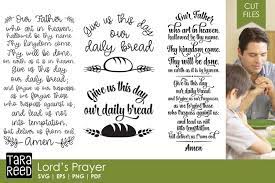 Our Father
who art in heaven,
hallowed be thy name
Thy kingdom come
Thy will be done,
on earth as it is in heaven
Give us this day
our daily bread
and forgive us
our trespasses
as we forgive those who
trespass against us
and lead us not into
temptation
but deliver us from evil
Amen
Give us this day
our daily bread
Give us this day
our daily bread
Our Father
who art in heaven,
hallowed be thy name.
Thy kingdom come.
Thy will be done,
on earth as it is in heaven.
Give us this day our daily bread
and forgive us our trespasses
as we forgive those who
trespass against us
and lead us not
into temptation,
but deliver us from evil
Amen
CUT
FILES
TARA
REED
Lord's Prayer
SVG | EPS | PNG | PDF